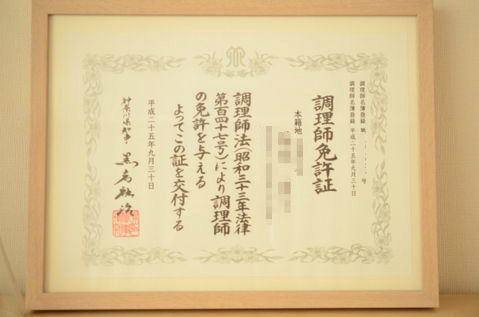 調理師免許証
調理師名簿登録 第 号
調理師名簿登録 平成二十五年九月三十日
本籍地
調理師法(昭和三十三年法律
第百四十七号)により調理師
の免許を与える
よってこの証を交付する
平成二十五年九月三十日
神奈川県知事 黒岩祐治